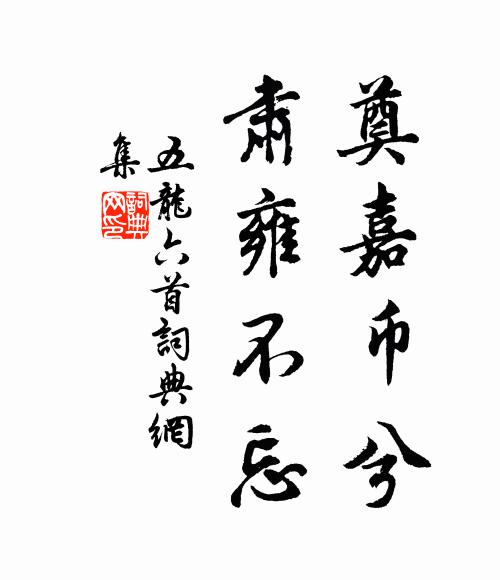 奠嘉币兮
肅雍不忘
五龍六首詞典網
集
詞典
网印